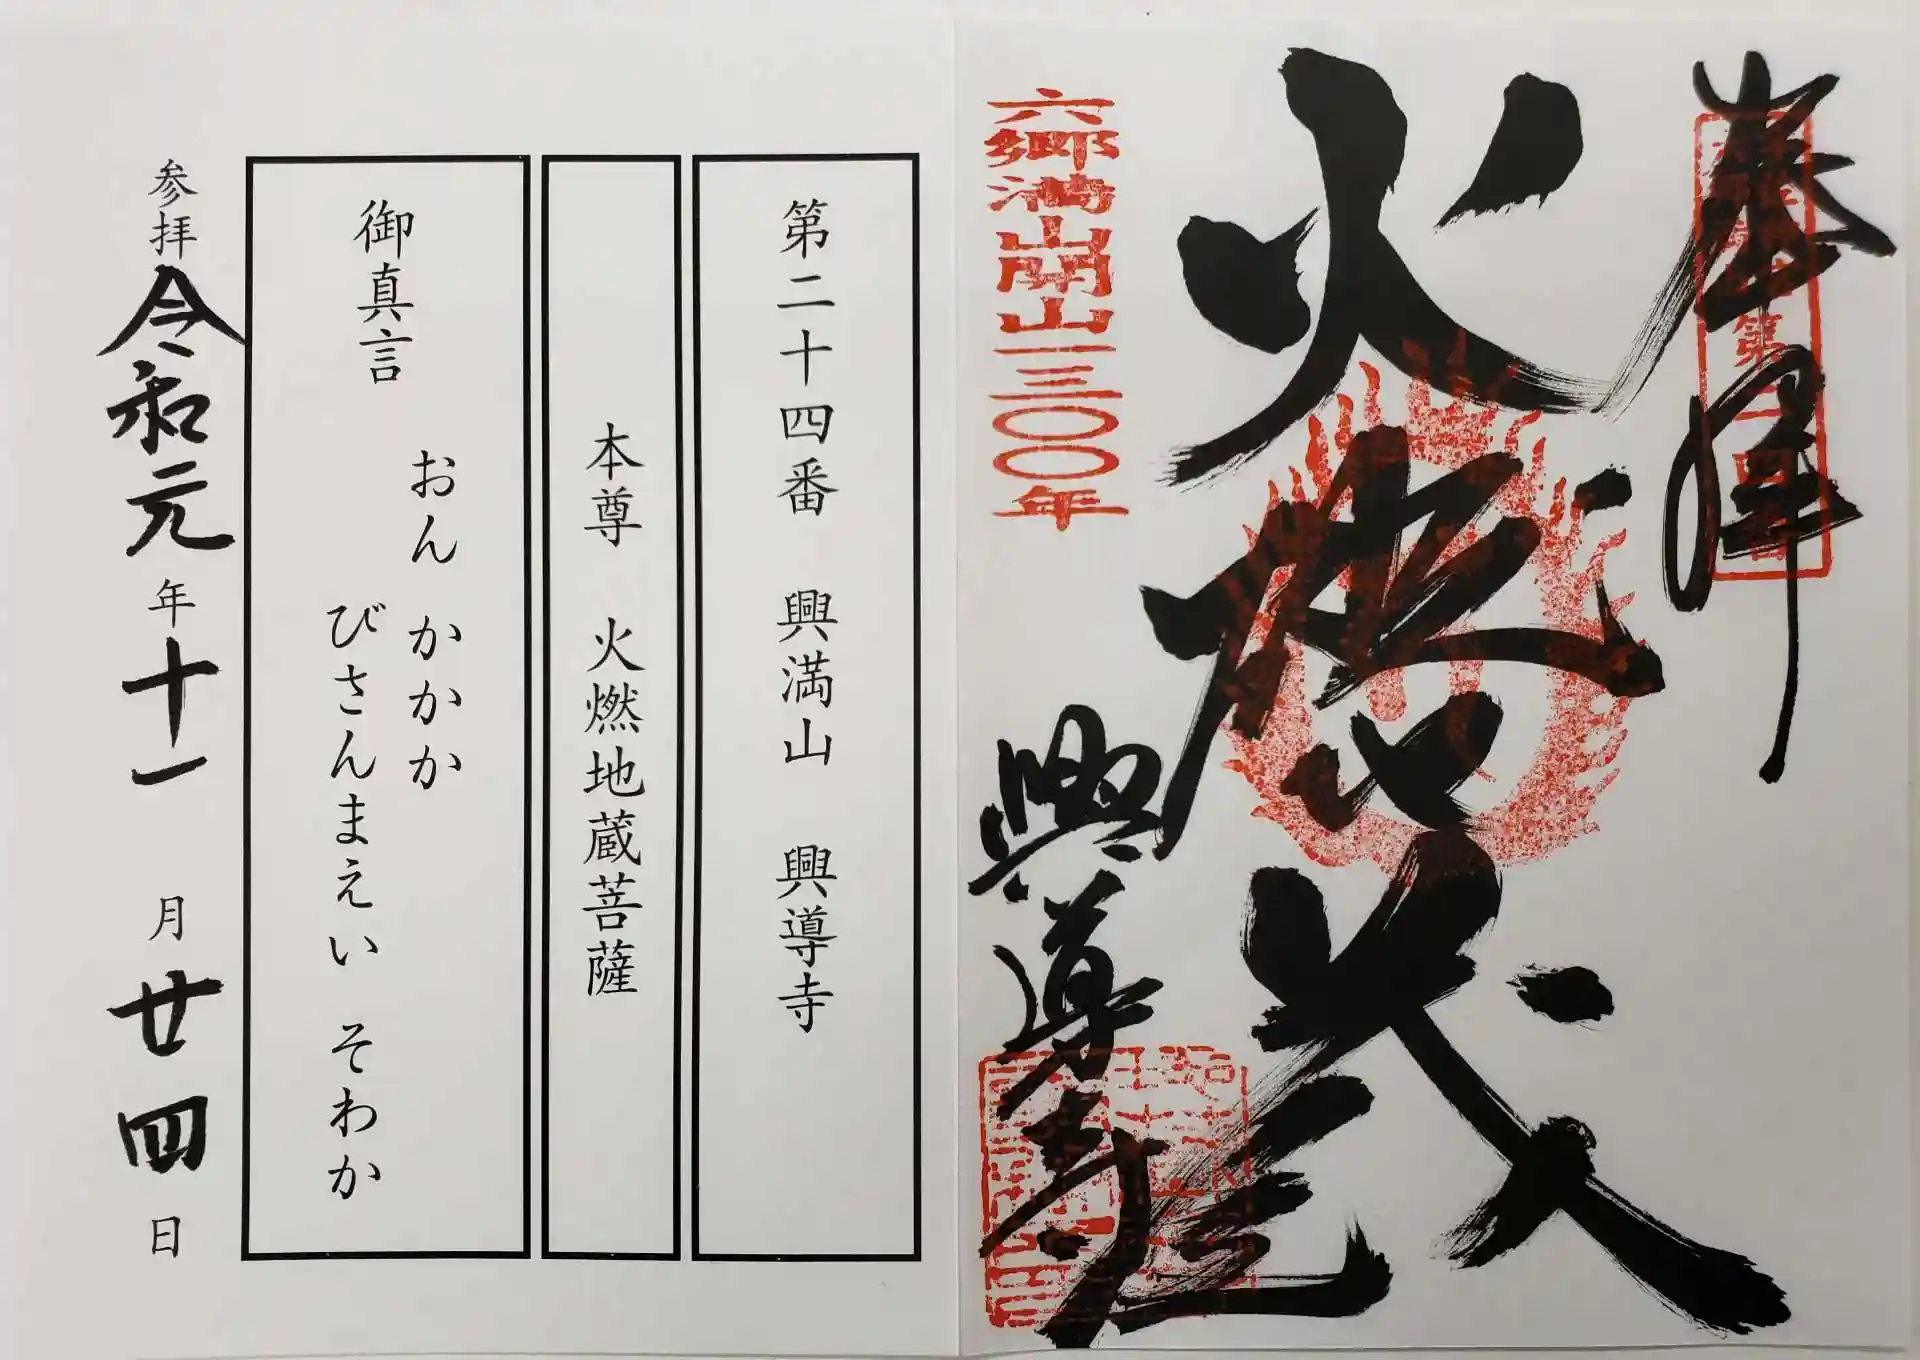 奉拝
火燃
地蔵
興導寺
六郷満山開山一三〇〇年
第二十四番 興満山 興導寺
本尊 火燃地蔵菩薩
御真言
おん かかか
びさんまえい そわか
参拝 令和元年十一月廿四日